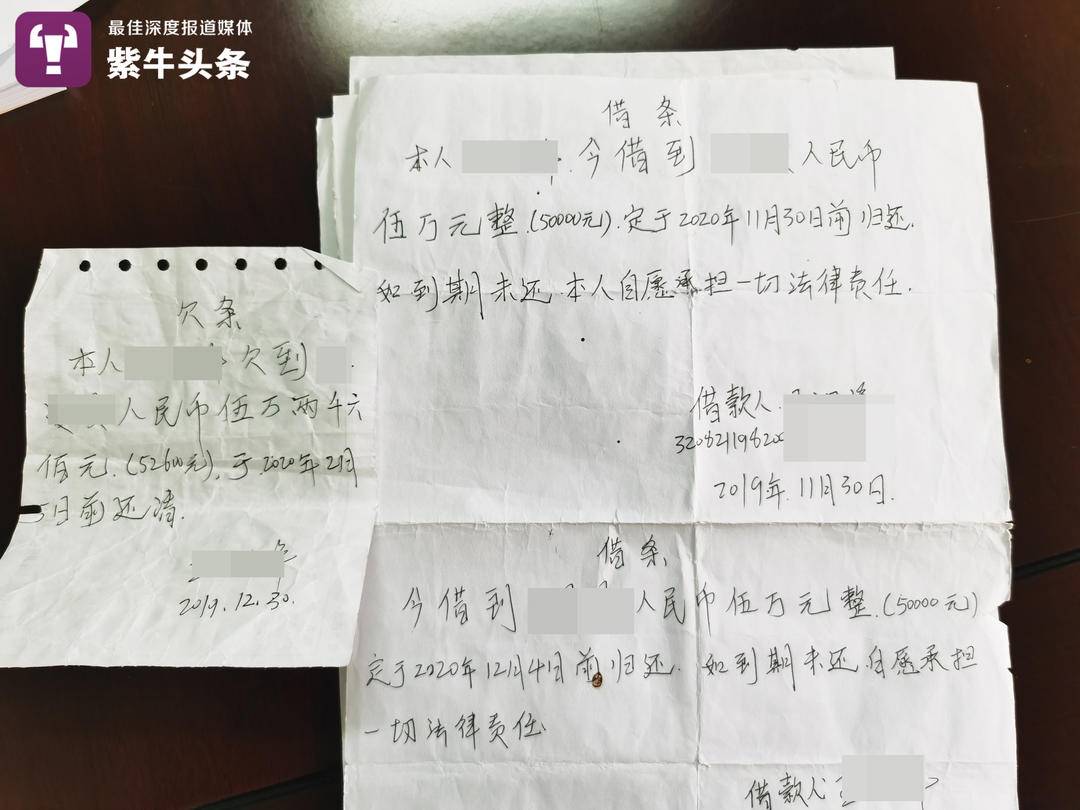 最佳深度报道媒体
紫牛头条
借条
本人 今借到 人民币
伍万元整.(50000元).定于2020年11月30日前归还.
如到期未还 本人自愿承担一切法律责任.
借款人
2019年.11月30日.
借条
今借到 人民币伍万元整.(50000元)
定于2020年12月4日前归还. 如到期未还.自愿承担
一切法律责任
借款人
欠条
本人 欠到
人民币伍万两千六
佰元.(52600元).于2020年2月
5日前还清.
2019.12.30.